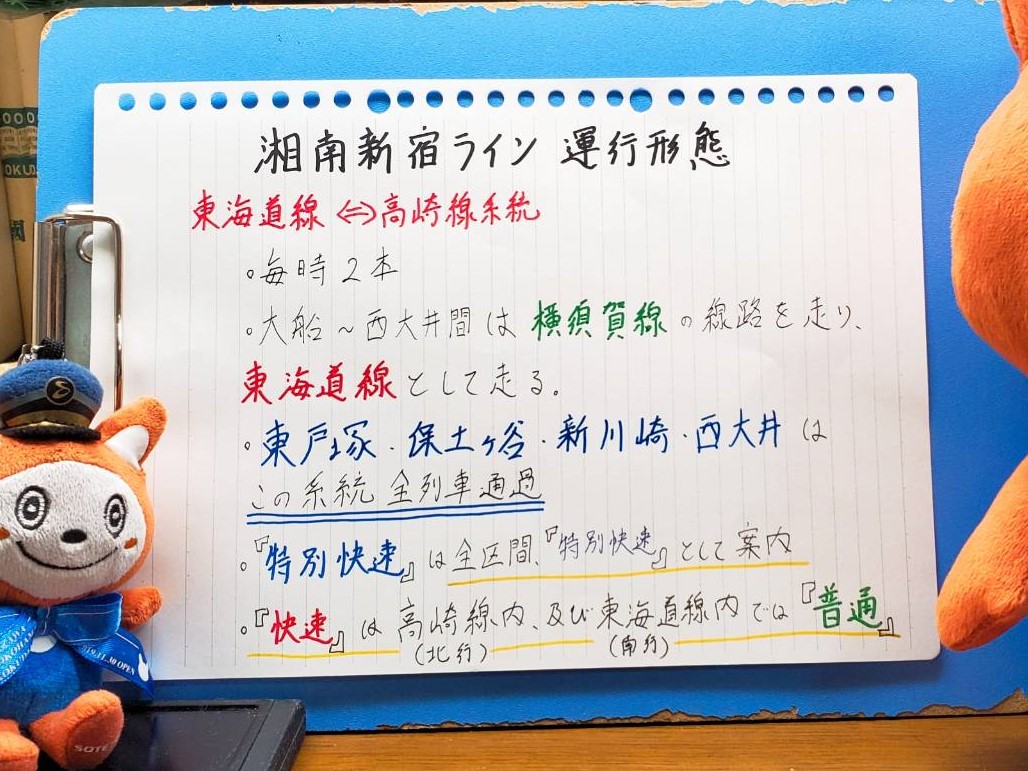 湘南新宿ライン 運行形態
東海道線⇔高崎線系統
・毎時2本
・大船〜西大井間は横須賀線の線路を走り、
東海道線として走る。
・東戸塚・保土ヶ谷・新川崎・西大井は
この系統 全列車通過
・『特別快速』は全区間、『特別快速』として案内
・『快速』は高崎線内、及び東海道線内では『普通』
(北行) (南行)
SOTE